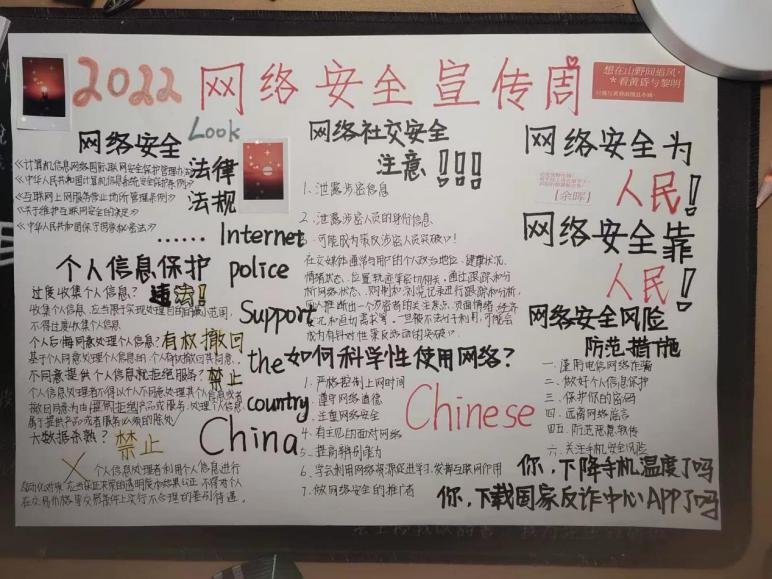 2022 网络安全宣传周
想在山野间追风，
看黄昏与黎明
网络安全
Look
法律
法规
《计算机信息网络国际联网安全保护管理办法》
《中华人民共和国计算机信息系统安全保护条例》
《互联网上网服务营业场所管理条例》
《关于维护互联网安全的决定》
《中华人民共和国保守国家秘密法》
……
Internet
police
Support
the
country
China
个人信息保护
过度收集个人信息？ 违法！
收集个人信息，应当限于实现处理目的的最小范围，
不得过度收集个人信息
个人后悔同意处理个人信息？ 有权撤回
基于个人同意处理个人信息的，个人有权撤回其同意。
不同意提供个人信息就拒绝服务？ 禁止
个人信息处理者不得以个人不同意处理其个人信息或者
撤回同意为由，拒绝提供产品或服务，处理个人信息
属于提供产品或者服务必须的除外
大数据杀熟？ 禁止
个人信息处理者利用个人信息进行
自动化决策，应当保证决策的透明度和结果公正，不得对个人
在交易价格等交易条件上实行不合理的差别待遇。
网络社交安全
注意！！！
1、泄露涉密信息
2、泄露涉密人员的身份信息
3、可能成为策反涉密人员突破口！
在交媒体通常与用户的个人政治地位、健康状况、
情绪状态、位置轨迹等密切相关，通过跟踪和分
如何科学性使用网络？
1、严格控制上网时间
2、遵守网络道德
3、注重网络安全
4、有主见的面对网络
5、提高辨别能力
6、学会利用网络资源促进学习，发挥互联网作用
7、做网络安全的推广者
Chinese
网络安全为
人民！
【余晖】
网络安全靠
人民！
网络安全风险
防范措施
一、谨用电信网络诈骗
二、做好个人信息保护
三、保护你的密码
四、远离网络谣言
四五、防范恶意软件
六、关注手机安全风险
你，下降手机温度了吗
你，下载国家反诈中心APP了吗